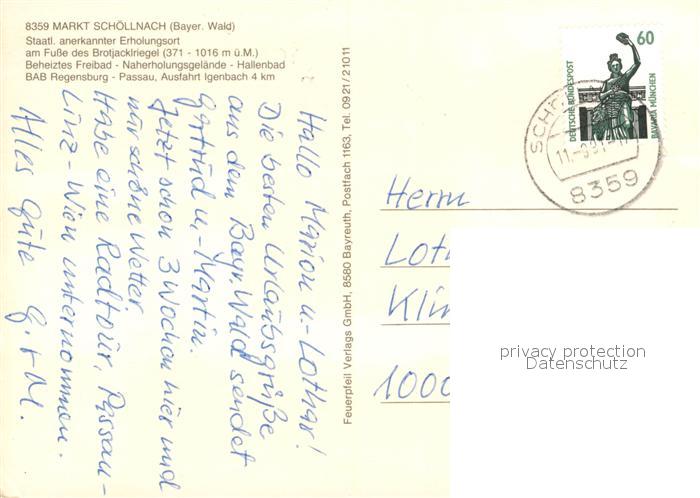 8359 MARKT SCHÖLLNACH (Bayer. Wald)
Staatl. anerkannter Erholungsort
am Fuße des Brotjacklriegel (371 - 1016 m ü.M.)
Beheiztes Freibad - Naherholungsgelände - Hallenbad
BAB Regensburg - Passau, Ausfahrt Igenbach 4 km
Hallo Marion u.-Lothar!
Die besten Urlaubsgrüße
aus dem Bayr. Wald sendet
Gertrud u,-Martin.
Jetzt schon 3 Wochen hier und
nur schöne Wetter.
Habe eine Radtour, Passau-
Linz-Wien unternommen.
Alles Gute G.+M.
Feuerpfeil Verlags GmbH, 8580 Bayreuth, Postfach 1163, Tel. 0921/21011
60
DEUTSCHE BUNDESPOST
BAVARIA MÜNCHEN
8359
Herrn
Loth
Klin
1000
privacy protection
Datenschutz